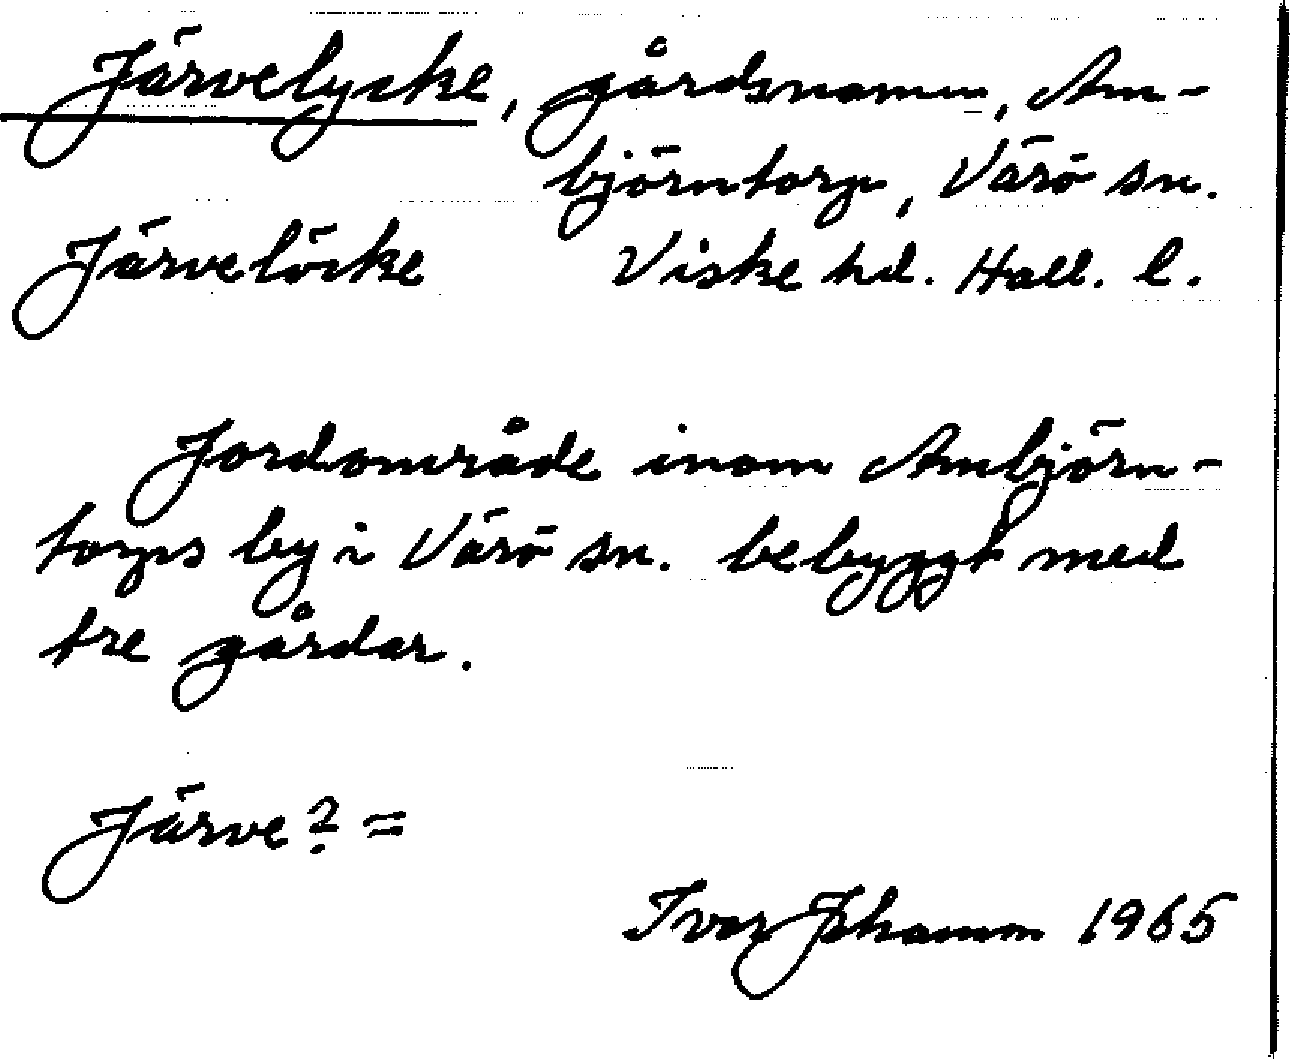 Järvelycke, gårdsnamn, Am-
björntorp, Värö sn.
Järvelöcke Viske hd. Hall. l.
Jordområde inom Ambjörn-
torps by i Värö sn. bebyggt med
tre gårdar.
Järve? =
Ivar Johanson 1965